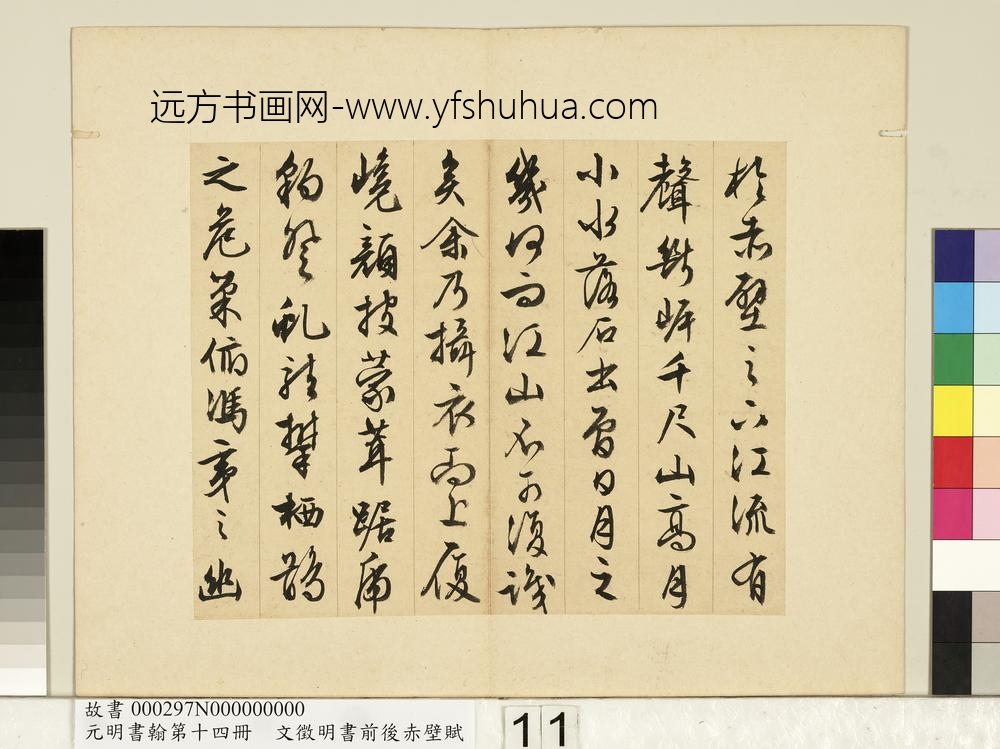 远方书画网-www.yfshuhua.com
於赤壁之下江流有
聲斷岸千尺山高月
小水落石出曾日月之
幾何而江山不可復識
矣余乃攝衣而上履
巉巖披蒙茸踞虎
豹登虬龍攀栖鶻
之危巢俯馮夷之幽
故書 000297N000000000
元明書翰第十四冊 文徵明書前後赤壁賦
11